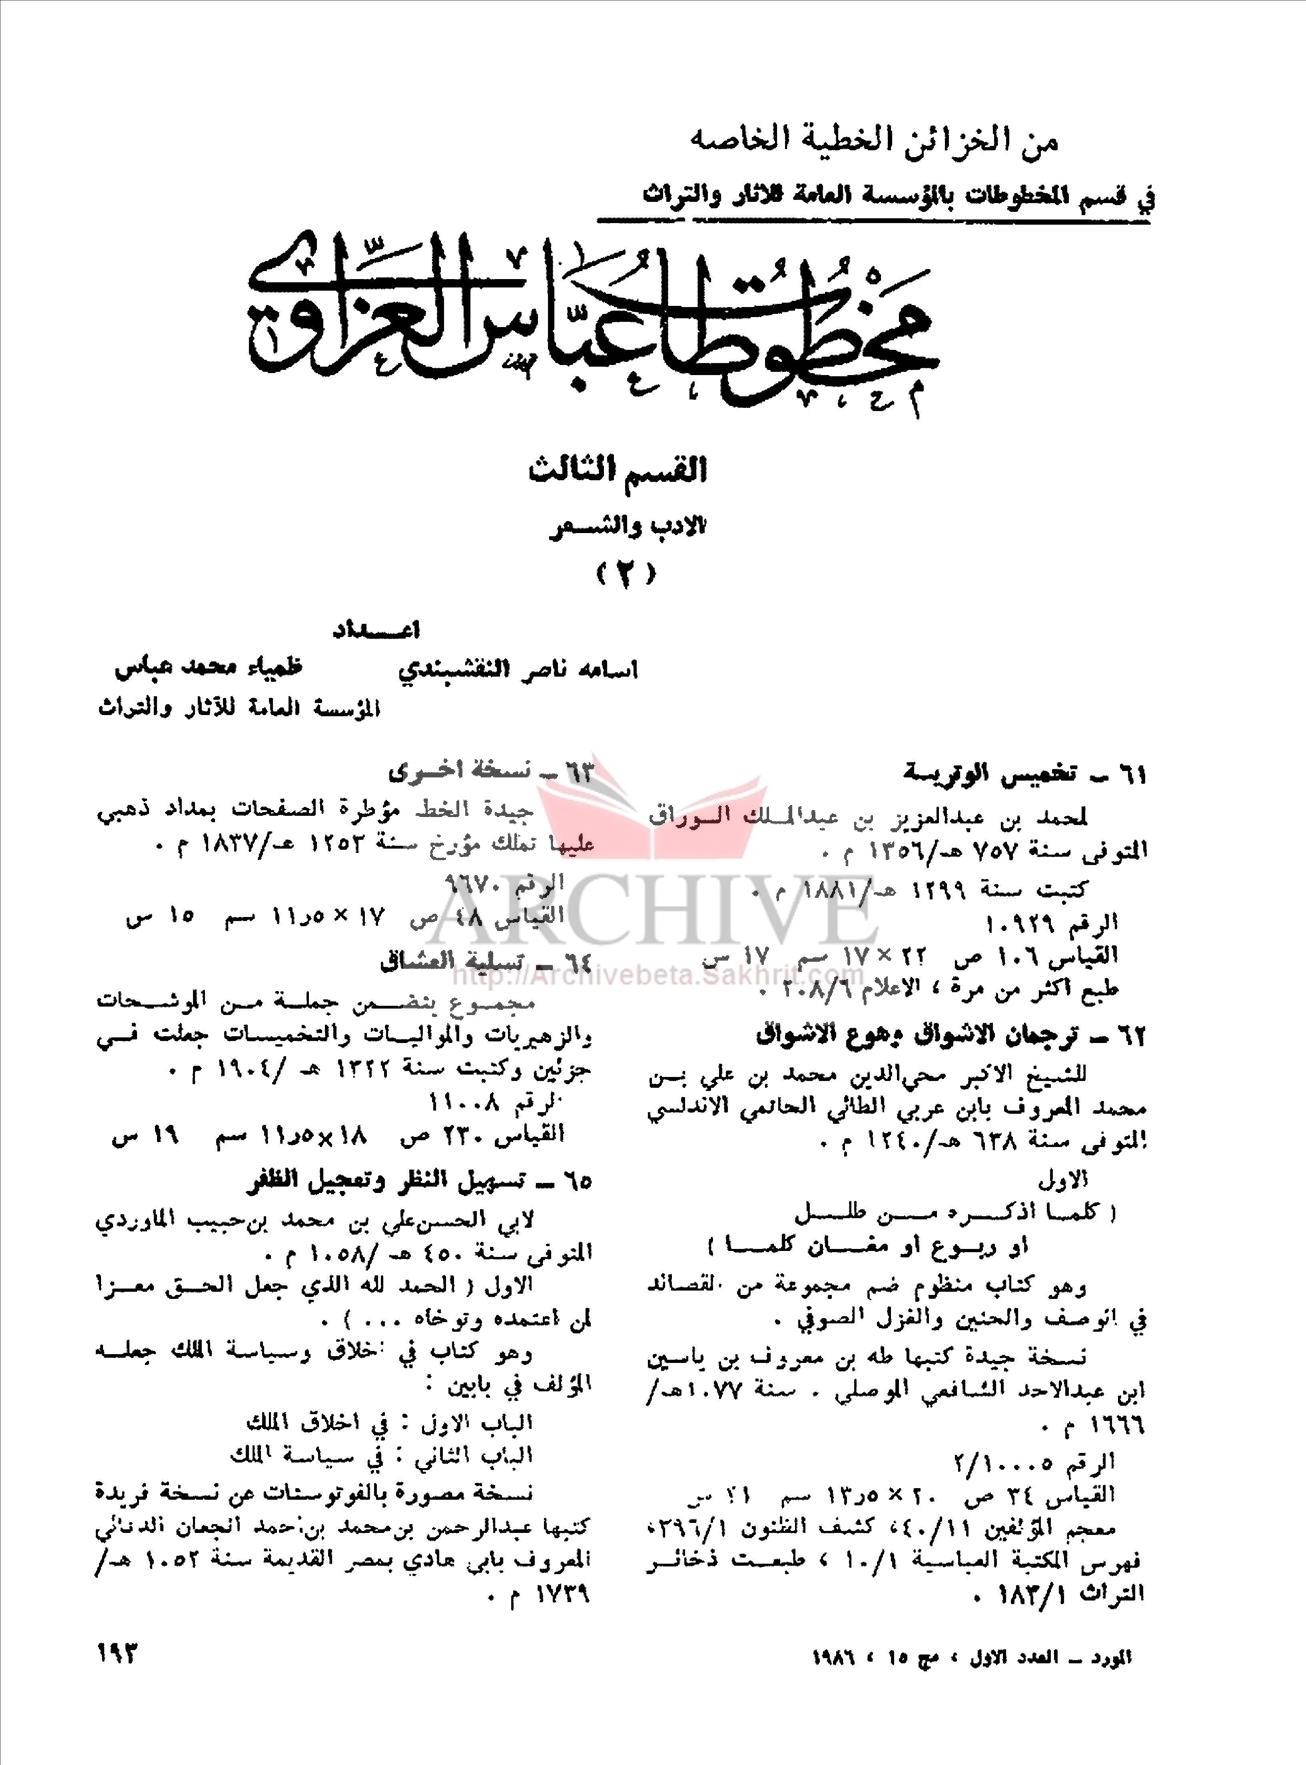 من الخزائن الخطية الخاصه
في قسم المخطوطات بالمؤسسة العامة للاثار والتراث
مخطوطات عباس العزاوي
القسم الثالث
الادب والشـعر
(٢)
اعــداد
اسامه ناصر النقشبندي ظمياء محمد عباس
المؤسسة العامة للآثار والتراث
٦١ – تخميس الوتريـة
لمحمد بن عبدالعزيز بن عبدالملك الوراق
المتوفى سنة ٧٥٧ هـ/١٣٥٦ م .
كتبت سنة ١٢٩٩ هـ/١٨٨١ م .
الرقم ١٠٩٢٩
القياس ١٠٦ ص ٢٢ × ١٧ سم ١٧ س
طبع اكثر من مرة ، الاعلام ٢٠٨/٦ .
٦٢ – ترجمان الاشواق وهوع الاشواق
للشيخ الاكبر محي‌الدين محمد بن علي بـن
محمد المعروف بابن عربي الطائي الحاتمي الاندلسي
المتوفى سنة ٦٣٨ هـ/١٢٤٠ م .
الاول
( كلما اذكـره مـن طلـل
او ربـوع او مغـان كلمـا )
وهو كتاب منظوم ضم مجموعة من القصائد
في الوصف والحنين والغزل الصوفي .
نسخة جيدة كتبها طه بن معروف بن ياسين
ابن عبدالاحد الشافعي الموصلي . سنة ١٠٧٧هـ/
١٦٦٦ م .
الرقم ٢/١٠٠٠٥
القياس ٣٤ ص ٢٠ × ١٣٫٥ سم ٢١ س
معجم المؤلفين ٤٠/١١، كشف الظنون ٣٩٦/١،
فهرس المكتبة العباسية ١٠/١ ، طبعت ذخائر
التراث ١٨٣/١ .
٦٣ – نسخة اخـرى
جيدة الخط مؤطرة الصفحات بمداد ذهبي
عليها تملك مؤرخ سنة ١٢٥٣ هـ/١٨٣٧ م .
الرقم ٩٦٧٠
القياس ٤٨ ص ١٧ × ١١٫٥ سم ١٥ س
٦٤ – تسلية العشاق
مجمـوع يتضـمن جملـة مـن الموشـحات
والزهيريات والمواليـات والتخميسـات جعلت فـي
جزئين وكتبت سنة ١٣٢٢ هـ /١٩٠٤ م .
الرقم ١١٠٠٨
القياس ٢٣٠ ص ١٨×١١٫٥ سم ١٩ س
٦٥ – تسهيل النظر وتعجيل الظفر
لابي الحسن‌علي بن محمد بن‌حبيب الماوردي
المتوفى سنة ٤٥٠ هـ /١٠٥٨ م .
الاول ( الحمد لله الذي جعل الحـق معـزا
لمن اعتمده وتوخاه ... ) .
وهو كتاب في اخلاق وسياسة الملك جعلـه
المؤلف في بابين :
الباب الاول : في اخلاق الملك
الباب الثاني : في سياسة الملك
نسخة مصورة بالفوتوستات عن نسخة فريدة
كتبها عبدالرحمن بن‌محمد بن‌احمد
المعروف بابي هادي بمصر القديمة سنة ١٠٥٢ هـ/
١٧٣٩ م .
ARCHIVE
http://Archivebeta.Sakhrit.com
المورد – العدد الاول ، مج ١٥ ، ١٩٨٦
١٩٣